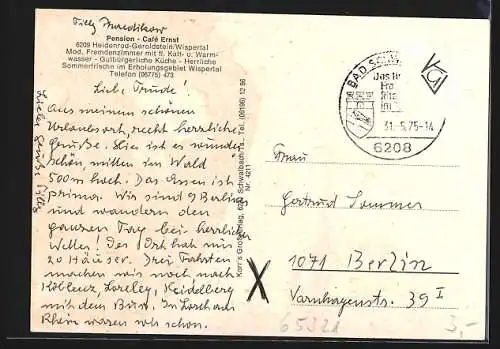 Pension - Café Ernst
6209 Heidenrod-Geroldstein/Wispertal
Mod. Fremdenzimmer mit fl. Kalt- u. Warm-
wasser - Gutbürgerliche Küche - Herrliche
Sommerfrische im Erholungsgebiet Wispertal
Telefon (06775) 473
Lieb. Trude!
Aus meinem schönen
Urlaubsort, recht herzliche
Grüße. Hier ist es wunder
schön, mitten im Wald
500m hoch. Das Essen ist
prima. Wir sind 9 Berliner
und wandern den
ganzen Tag bei herrlichem
Wetter. Der Ort hat nur
20 Häuser. Drei Fahrten
machen wir noch nach
Koblenz, Loreley, Heidelberg
mit dem Bus. In Lorch am
Rhein waren wir schon.
Korr's Großverlag, 6208 Schwalbach/Ts., Tel. (06196) 12 96
Nr. 4211
BAD SCHW
31.-5.75-14
6208
Frau
Gertrud Sommer
1071 Berlin
Varnhagenstr. 39 I
65321
3,-